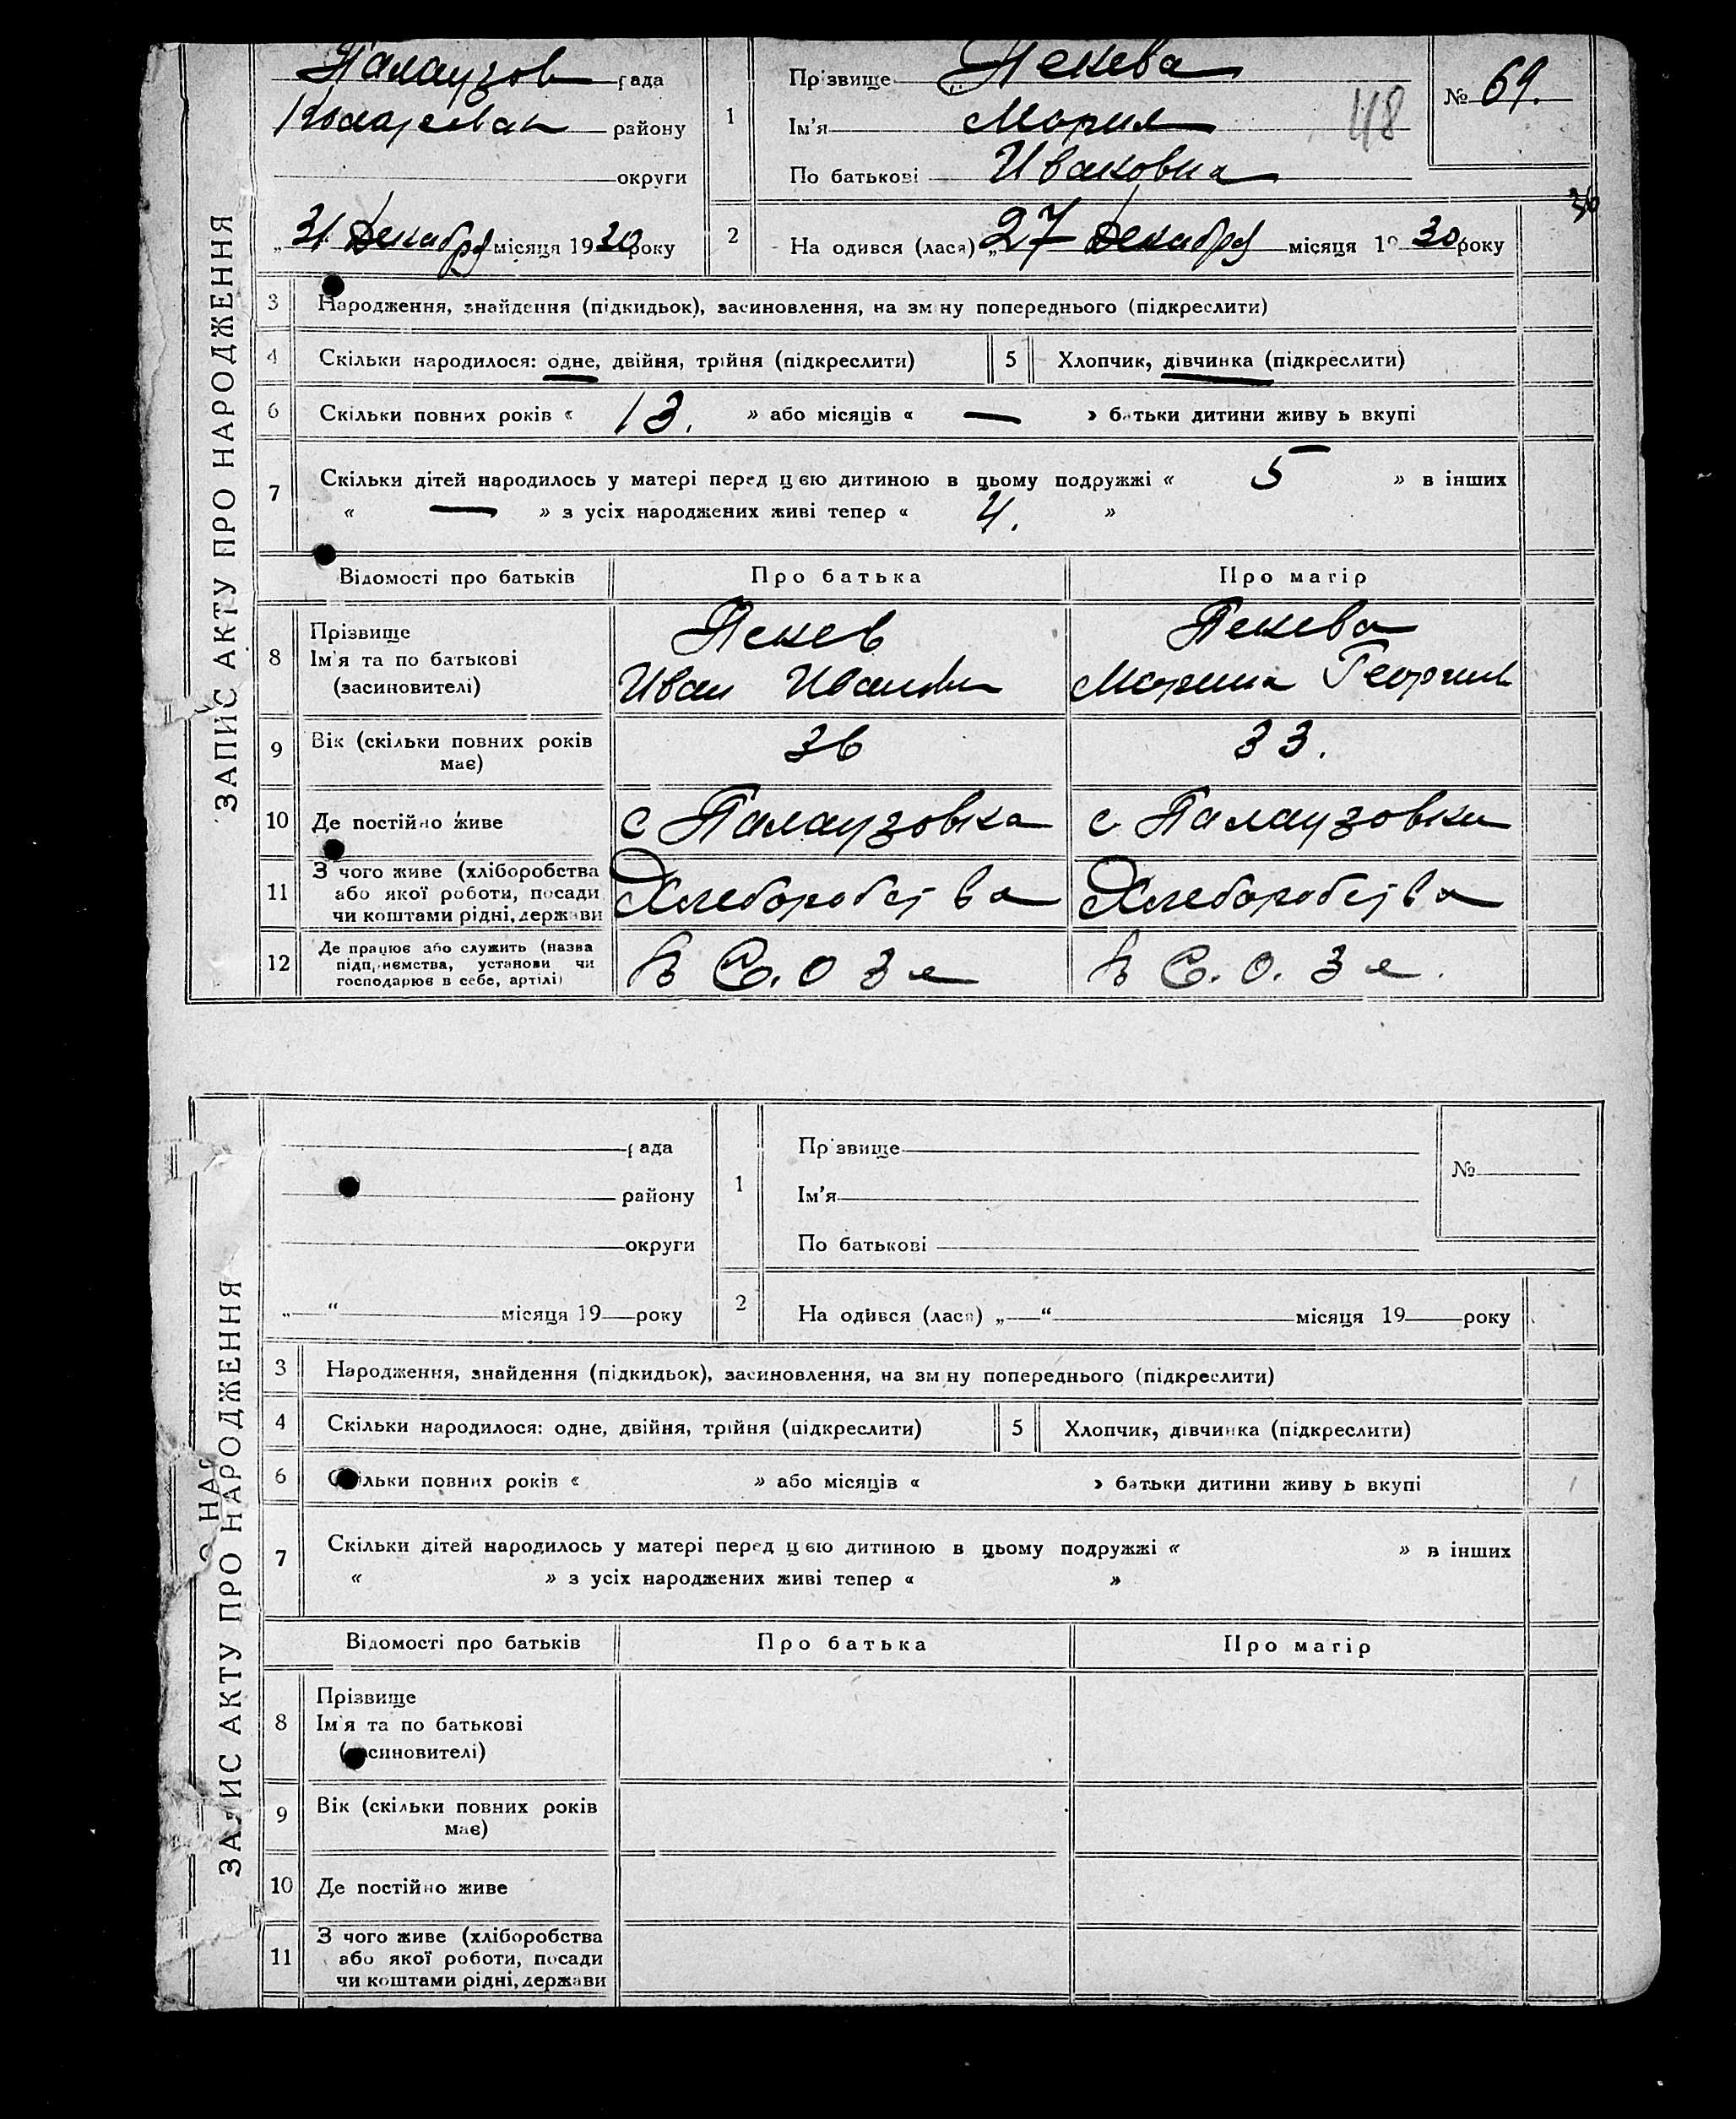 ЗАПИС АКТУ ПРО НАРОДЖЕННЯ
Палаузов рада
району
округи
„31 Декабря місяця 1930 року
1
Прізвище Пекева
Ім'я Мория
По батькові Ивановна
48
№ 69.
30
2
На одився (лася) „27 Декабря місяця 19 30 року
3 Народження, знайдення (підкидьок), засиновлення, на зм ну попереднього (підкреслити)
4 Скільки народилося: одне, двійня, трійня (підкреслити) 5 Хлопчик, дівчинка (підкреслити)
6 Скільки повних років « 13. » або місяців « — » батьки дитини живу ь вкупі
7 Скільки дітей народилось у матері перед цією дитиною в цьому подружжі « 5 » в інших
« — » з усіх народжених живі тепер « 4. »
Відомості про батьків Про батька Про матір
8 Прізвище
Ім'я та по батькові
(засиновителі)
Пекев
Иван Иванови
Пекева
Морина Георгиев
9 Вік (скільки повних років має) 36 33.
10 Де постійно живе с Палаузовка с. Палаузовки
11 З чого живе (хліборобства
або якої роботи, посади
чи коштами рідні, держави
Хлеборобства Хлеборобства
12 Де працює або служить (назва
підприємства, установи чи
господарює в себе, артілі)
в С.О З е в С. О. З е.
ЗАПИС АКТУ ПРО НАРОДЖЕННЯ
О НАР
рада
району
округи
„ “ місяця 19 року
1
Пр звище
Ім'я
По батькові
№
2
На одився (лася) „ “ місяця 19 року
3 Народження, знайдення (підкидьок), засиновлення, на зм ну попереднього (підкреслити)
4 Скільки народилося: одне, двійня, трійня (підкреслити) 5 Хлопчик, дівчинка (підкреслити)
6 Скільки повних років « » або місяців « » батьки дитини живу ь вкупі
7 Скільки дітей народилось у матері перед цією дитиною в цьому подружжі « » в інших
« » з усіх народжених живі тепер « »
Відомості про батьків Про батька Про матір
8 Прізвище
Ім'я та по батькові
(засиновителі)
9 Вік (скільки повних років
має)
10 Де постійно живе
11 З чого живе (хліборобства
або якої роботи, посади
чи коштами рідні, держави